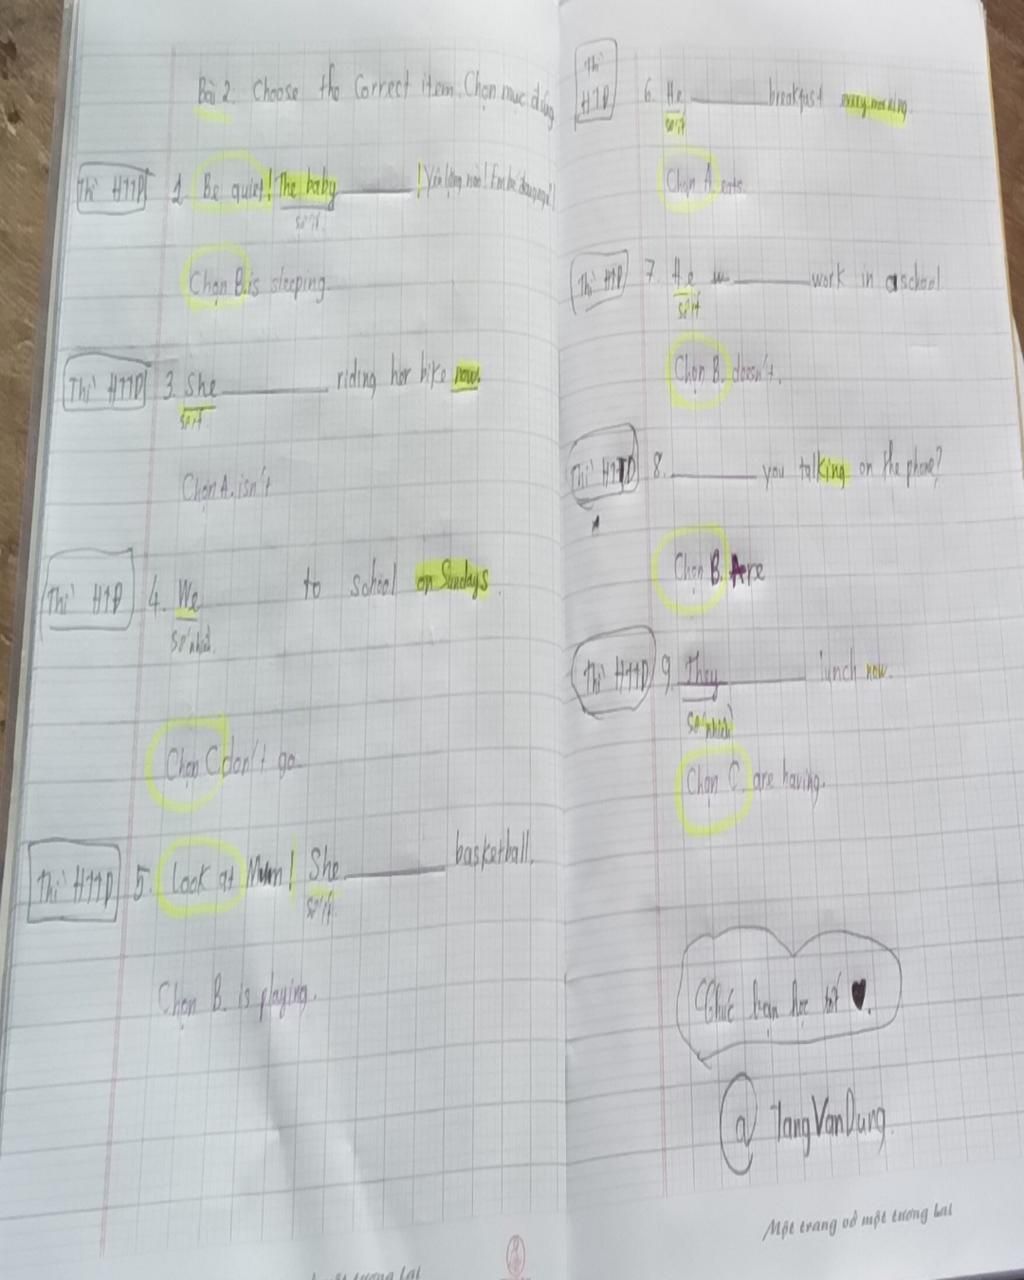 Bài 2. Choose the correct item. Chọn mục đúng
Thì HTTD 1. Be quiet! The baby ______! Yên lặng nào! Em bé đang ngủ!
số ít
Chọn B. is sleeping
Thì HTTD 3. She ______ riding her bike now.
số ít
Chọn A. isn't
Thì HTD 4. We to school on Sundays.
số nhiều
Chọn C. don't go
Thì HTTD 5. Look at Mum! She ______ basketball.
số ít
Chọn B. is playing.
một tương lai
Thì HTD 6. He ______ breakfast every morning.
số ít
Chọn A. eats.
Thì HTD 7. He ______ work in a school
số ít
Chọn B. doesn't.
Thì HTTD 8. ______ you talking on the phone?
Chọn B. Are
Thì HTTD 9. They ______ lunch now.
số nhiều
Chọn C. are having.
Chúc bạn học tốt ♥.
@ TangVanDung.
Một trang vở một tương lai